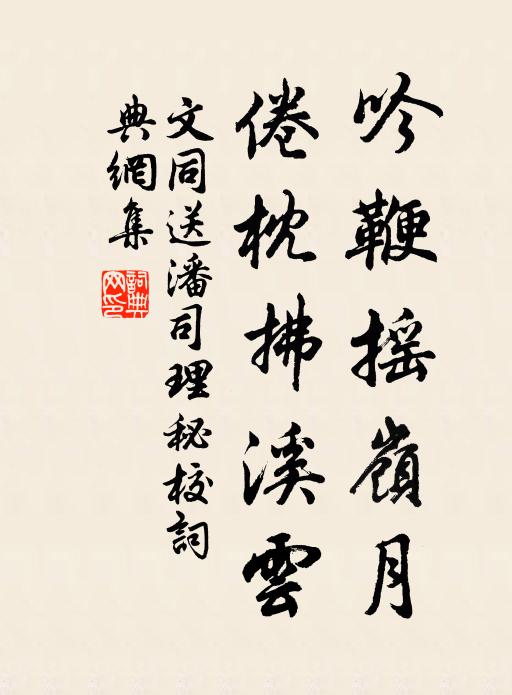 吟鞭摇嶺月
倦枕拂溪雲
文同送潘司理秘校詞
典網集
詞典網印